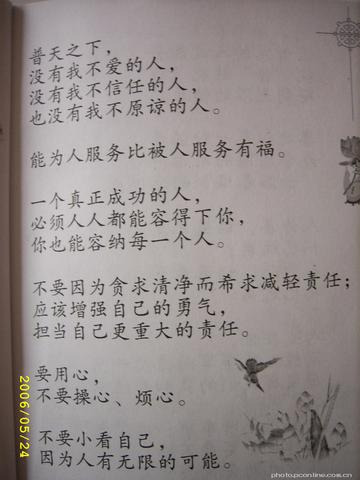 普天之下，
没有我不爱的人，
没有我不信任的人，
也没有我不原谅的人。
能为人服务比被人服务有福。
一个真正成功的人，
必须人人都能容得下你，
你也能容纳每一个人。
不要因为贪求清净而希求减轻责任；
应该增强自己的勇气，
担当自己更重大的责任。
要用心，
不要操心、烦心。
不要小看自己，
因为人有无限的可能。
2006/05/24
photo.pconline.com.cn